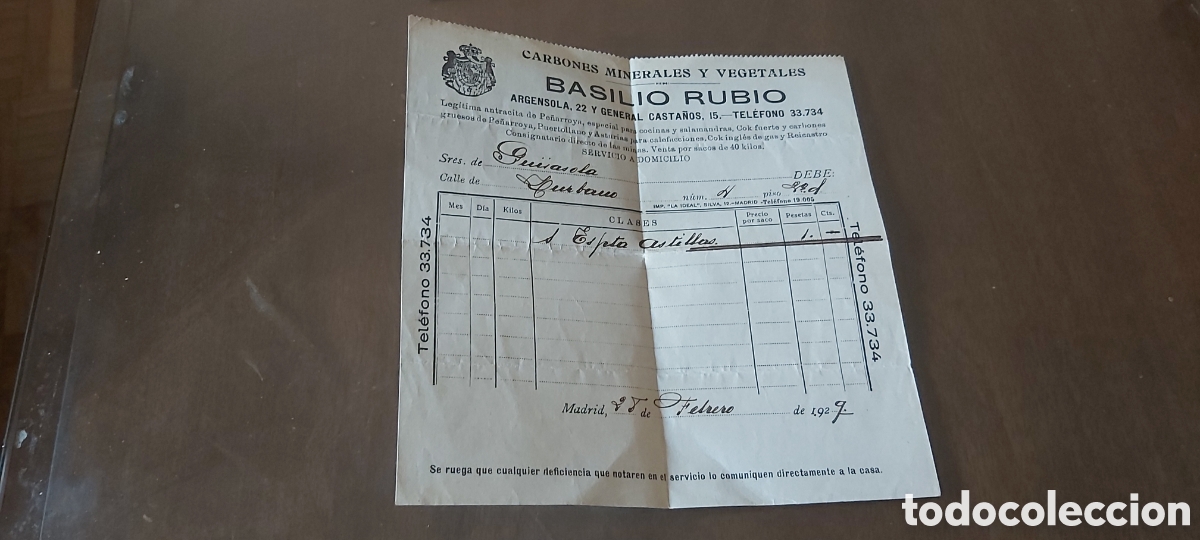 CARBONES MINERALES Y VEGETALES
BASILIO RUBIO
ARGENSOLA, 22 Y GENERAL CASTAÑOS, 15.—TELÉFONO 33.734
Legítima antracita de Peñarroya, especial para cocinas y salamandras, Cok fuerte y carbones
gruesos de Peñarroya, Puertollano y Asturias para calefacciones, Cok inglés de gas y Reicastro
Consignatario directo de las minas. Venta por sacos de 40 kilos!
SERVICIO A DOMICILIO
Sres. de Guisasola DEBE:
Calle de Zurbano núm. piso
IMP. "LA IDEAL", SILVA, 19.-MADRID -Teléfono 19.065
Mes Día Kilos CLASES Precio por saco Pesetas Cts.
1 Espta astillas. 1. —
Teléfono 33.734
Teléfono 33.734
Madrid, de Febrero de 1929.
Se ruega que cualquier deficiencia que notaren en el servicio lo comuniquen directamente a la casa.
todocoleccion